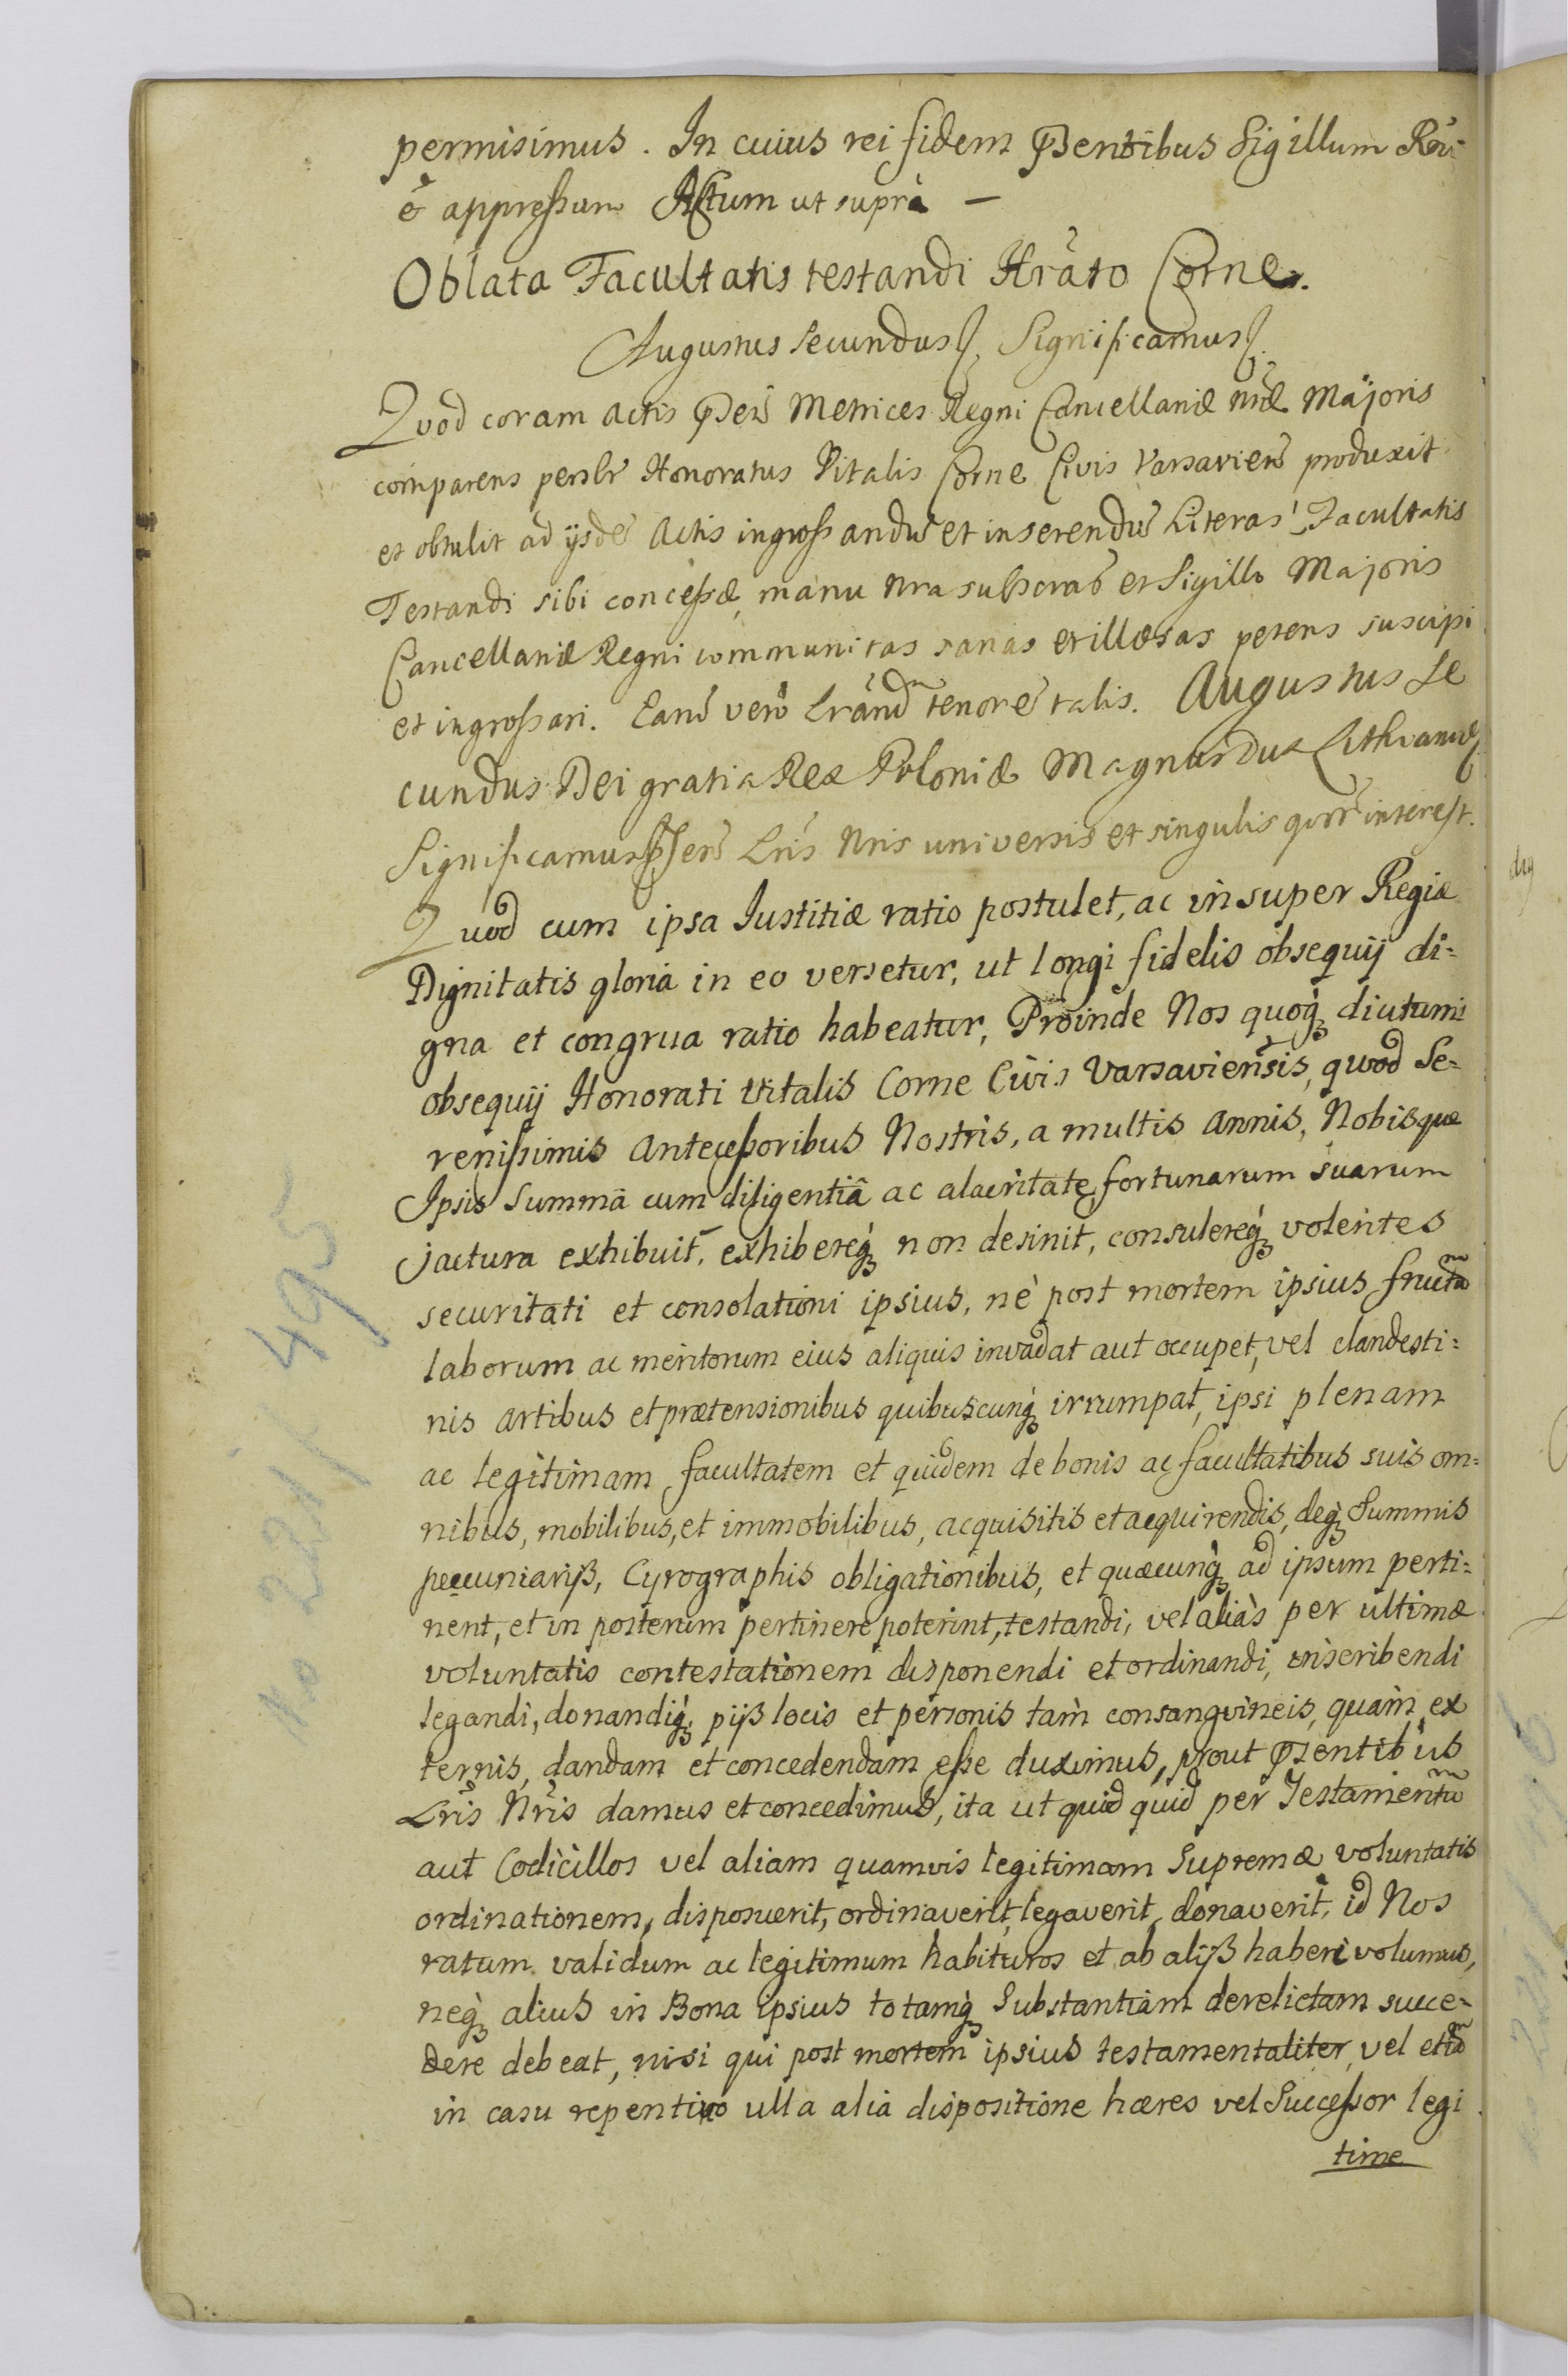 permisimus. In cuius rei fidem Psentibus Sigillum Rni
ẽ appressum Actum ut suprà —
Oblata Facultatis testandi Hrãto Corne.
Augustus Secundus Significamus
Quod coram actis Psen Metrices Regni Cancellariæ nræ Majoris
comparens persolr Honoratus Vitalis Corne Civis Varsavien produxit
et obtulit ad ijsdẽ Actis ingrossandũ et inserendũ Literas Facultatis
Testandi sibi concessæ, manu nra subscrat et Sigillo Majoris
Cancellariæ Regni communitas sanas et illæsas petens suscipi
et ingrossari. Earũ verò Lrãrũ tenorẽ talis. Augustus Se
cundus Dei gratia Rex Poloniæ Magnus Dux Lithvaniæ
Significamus Psen Lris Nris universis et singulis qorũ interest.
Quod cum ipsa Iustitiæ ratio postulet, ac insuper Regiæ
Dignitatis gloria in eo versetur, ut longi fidelis obsequij di=
gna et congrua ratio habeatur, Proinde Nos quoq, diuturni
obsequij Honorati Vitalis Corne Civis Varsaviensis, quod Se=
renissimis Antecessoribus Nostris, a multis Annis, Nobisque
Ipsis Summâ cum diligentiâ ac alacritate, fortunarum suarum
jactura exhibuit, exhibereq, non desinit, consulereq, volentes
securitati et consolationi ipsius, nè post mortem ipsius fructũ
laborum ac meritorum eius aliquis invadat aut occupet, vel clandesti=
nis artibus et prætensionibus quibuscunq, irrumpat, ipsi plenam
ac legitimam facultatem et quidem de bonis ac facultatibus suis om=
nibus, mobilibus, et immobilibus, acquisitis et acquirendis, deq, Summis
pecuniarijs, Cyrographis obligationibus, et quæcunq, ad ipsum perti=
nent, et in posterum pertinere poterint, testandi, vel aliàs per ultimæ
voluntatis contestationem disponendi et ordinandi, inscribendi
legandi, donandiq, pijs locis et personis tam consanguineis, quam ex
ternis, dandam et concedendam esse duximus, prout Psentibus
Lris Nris damus et concedimus, ita ut quid quid per Testamentũ
aut Codicillos vel aliam quamvis legitimam Supremæ voluntatis
ordinationem, disposuerit, ordinaverit, legaverit, donaverit, id Nos
ratum validum ac legitimum habituros et ab alijs haberi volumus,
neq, alius in Bona ipsius totamq, Substantiam derelictam succe=
dere debeat, nisi qui post mortem ipsius testamentaliter, vel etiã
in casu repentino ulla alia dispositione hæres vel Successor legi
time
495